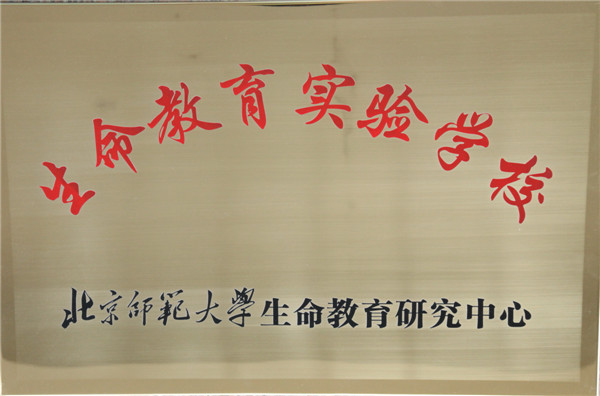 生命教育实验学校
北京师範大學生命教育研究中心